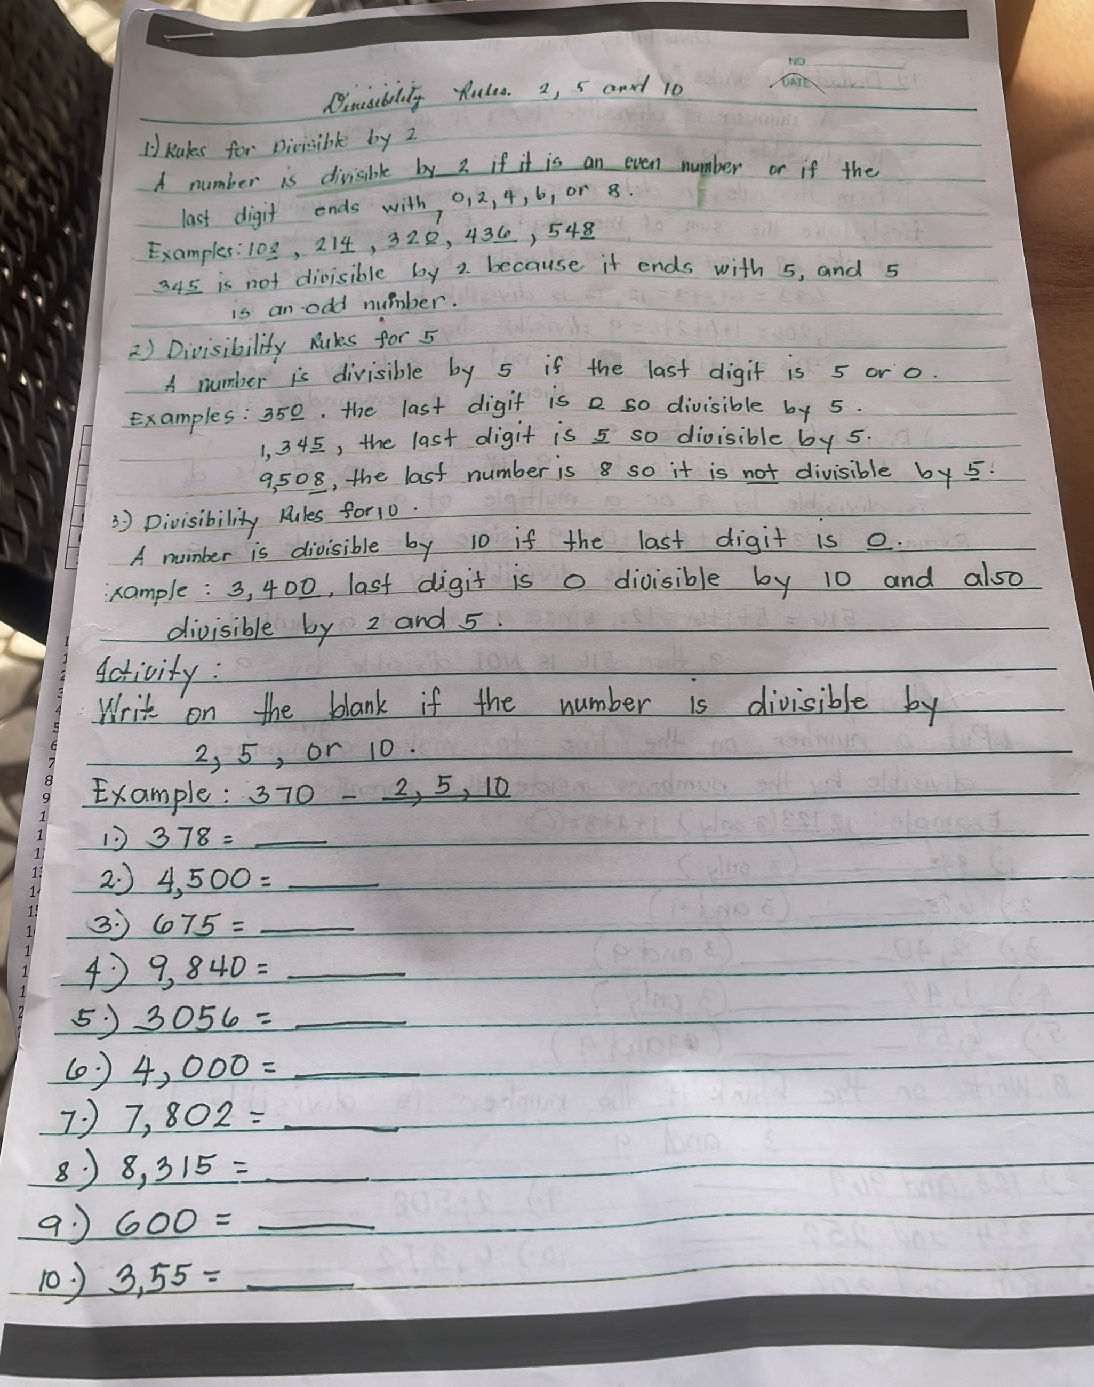 NO.
DATE
Divisibility Rules. 2, 5 and 10
1.) Rules for Divisible by 2
A number is divisible by 2 if it is an even number or if the
last digit ends with 0, 2, 4, 6, or 8.
Examples: 102, 214, 320, 436, 548
345 is not divisible by 2 because it ends with 5, and 5
is an odd number.
2.) Divisibility Rules for 5
A number is divisible by 5 if the last digit is 5 or 0.
Examples: 350, the last digit is 0 so divisible by 5.
1,345, the last digit is 5 so divisible by 5.
9,508, the last number is 8 so it is not divisible by 5.
3.) Divisibility Rules for 10.
A number is divisible by 10 if the last digit is 0.
xample: 3,400, last digit is 0 divisible by 10 and also
divisible by 2 and 5.
Activity:
Write on the blank if the number is divisible by
2, 5, or 10.
Example: 370 - 2, 5, 10
1.) 378 = ____
2.) 4,500 = ____
3.) 675 = ____
4.) 9,840 = ____
5.) 3056 = ____
6.) 4,000 = ____
7.) 7,802 = ____
8.) 8,315 = ____
9.) 600 = ____
10.) 3,55 = ____